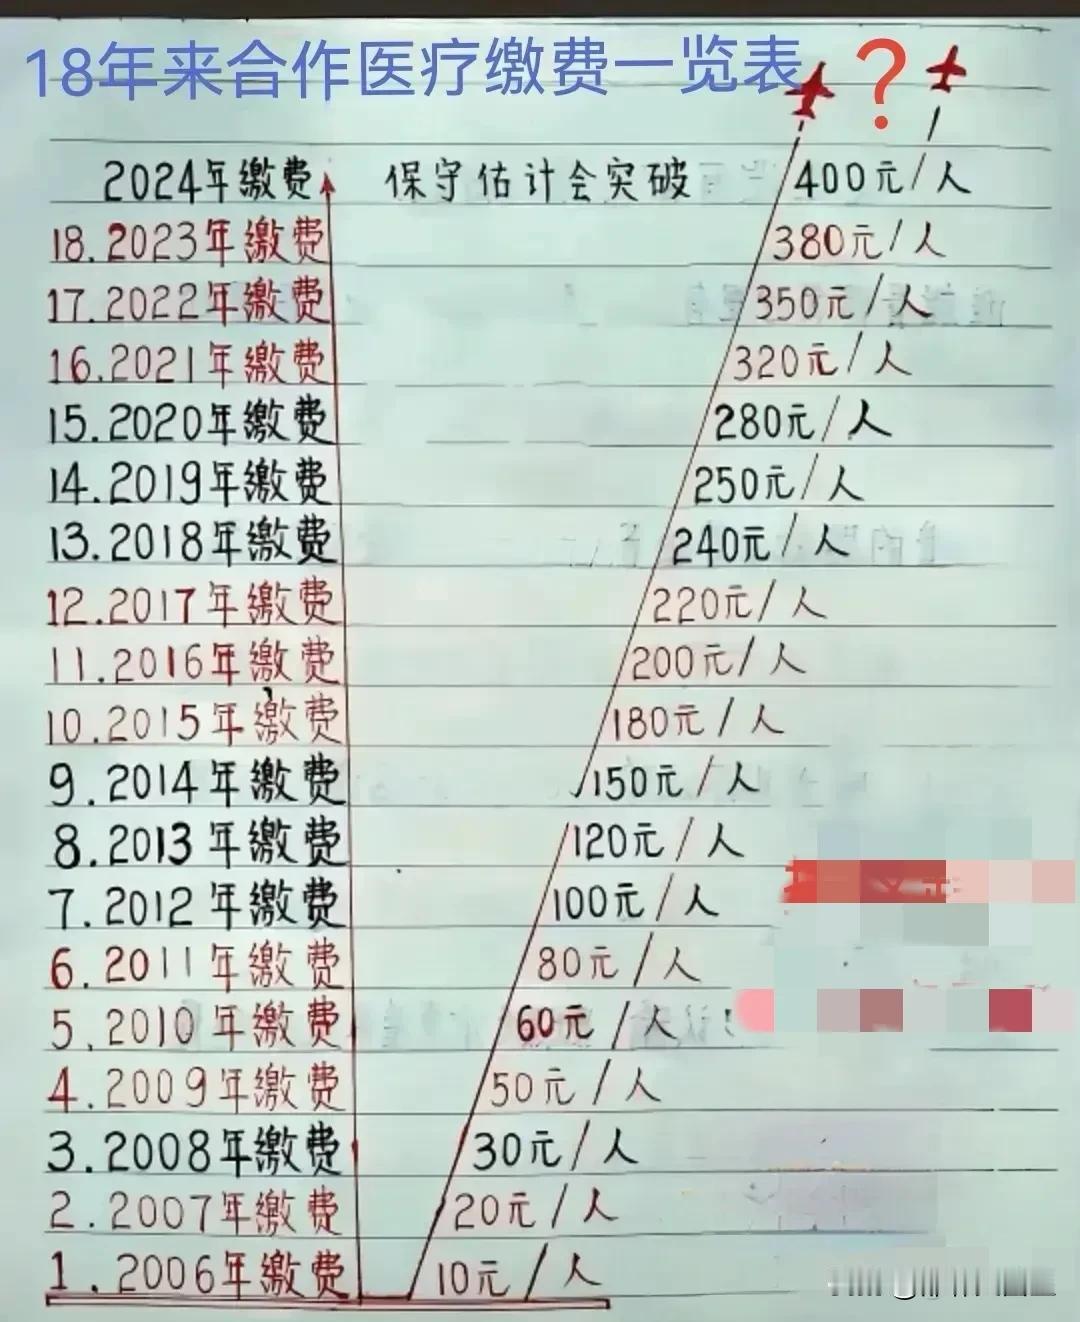 18年来合作医疗缴费一览表？
2024年缴费 保守估计会突破 400元/人
18.2023年缴费 380元/人
17.2022年缴费 350元/人
16.2021年缴费 320元/人
15.2020年缴费 280元/人
14.2019年缴费 250元/人
13.2018年缴费 240元/人
12.2017年缴费 220元/人
11.2016年缴费 200元/人
10.2015年缴费 180元/人
9.2014年缴费 150元/人
8.2013年缴费 120元/人
7.2012年缴费 100元/人
6.2011年缴费 80元/人
5.2010年缴费 60元/人
4.2009年缴费 50元/人
3.2008年缴费 30元/人
2.2007年缴费 20元/人
1.2006年缴费 10元/人